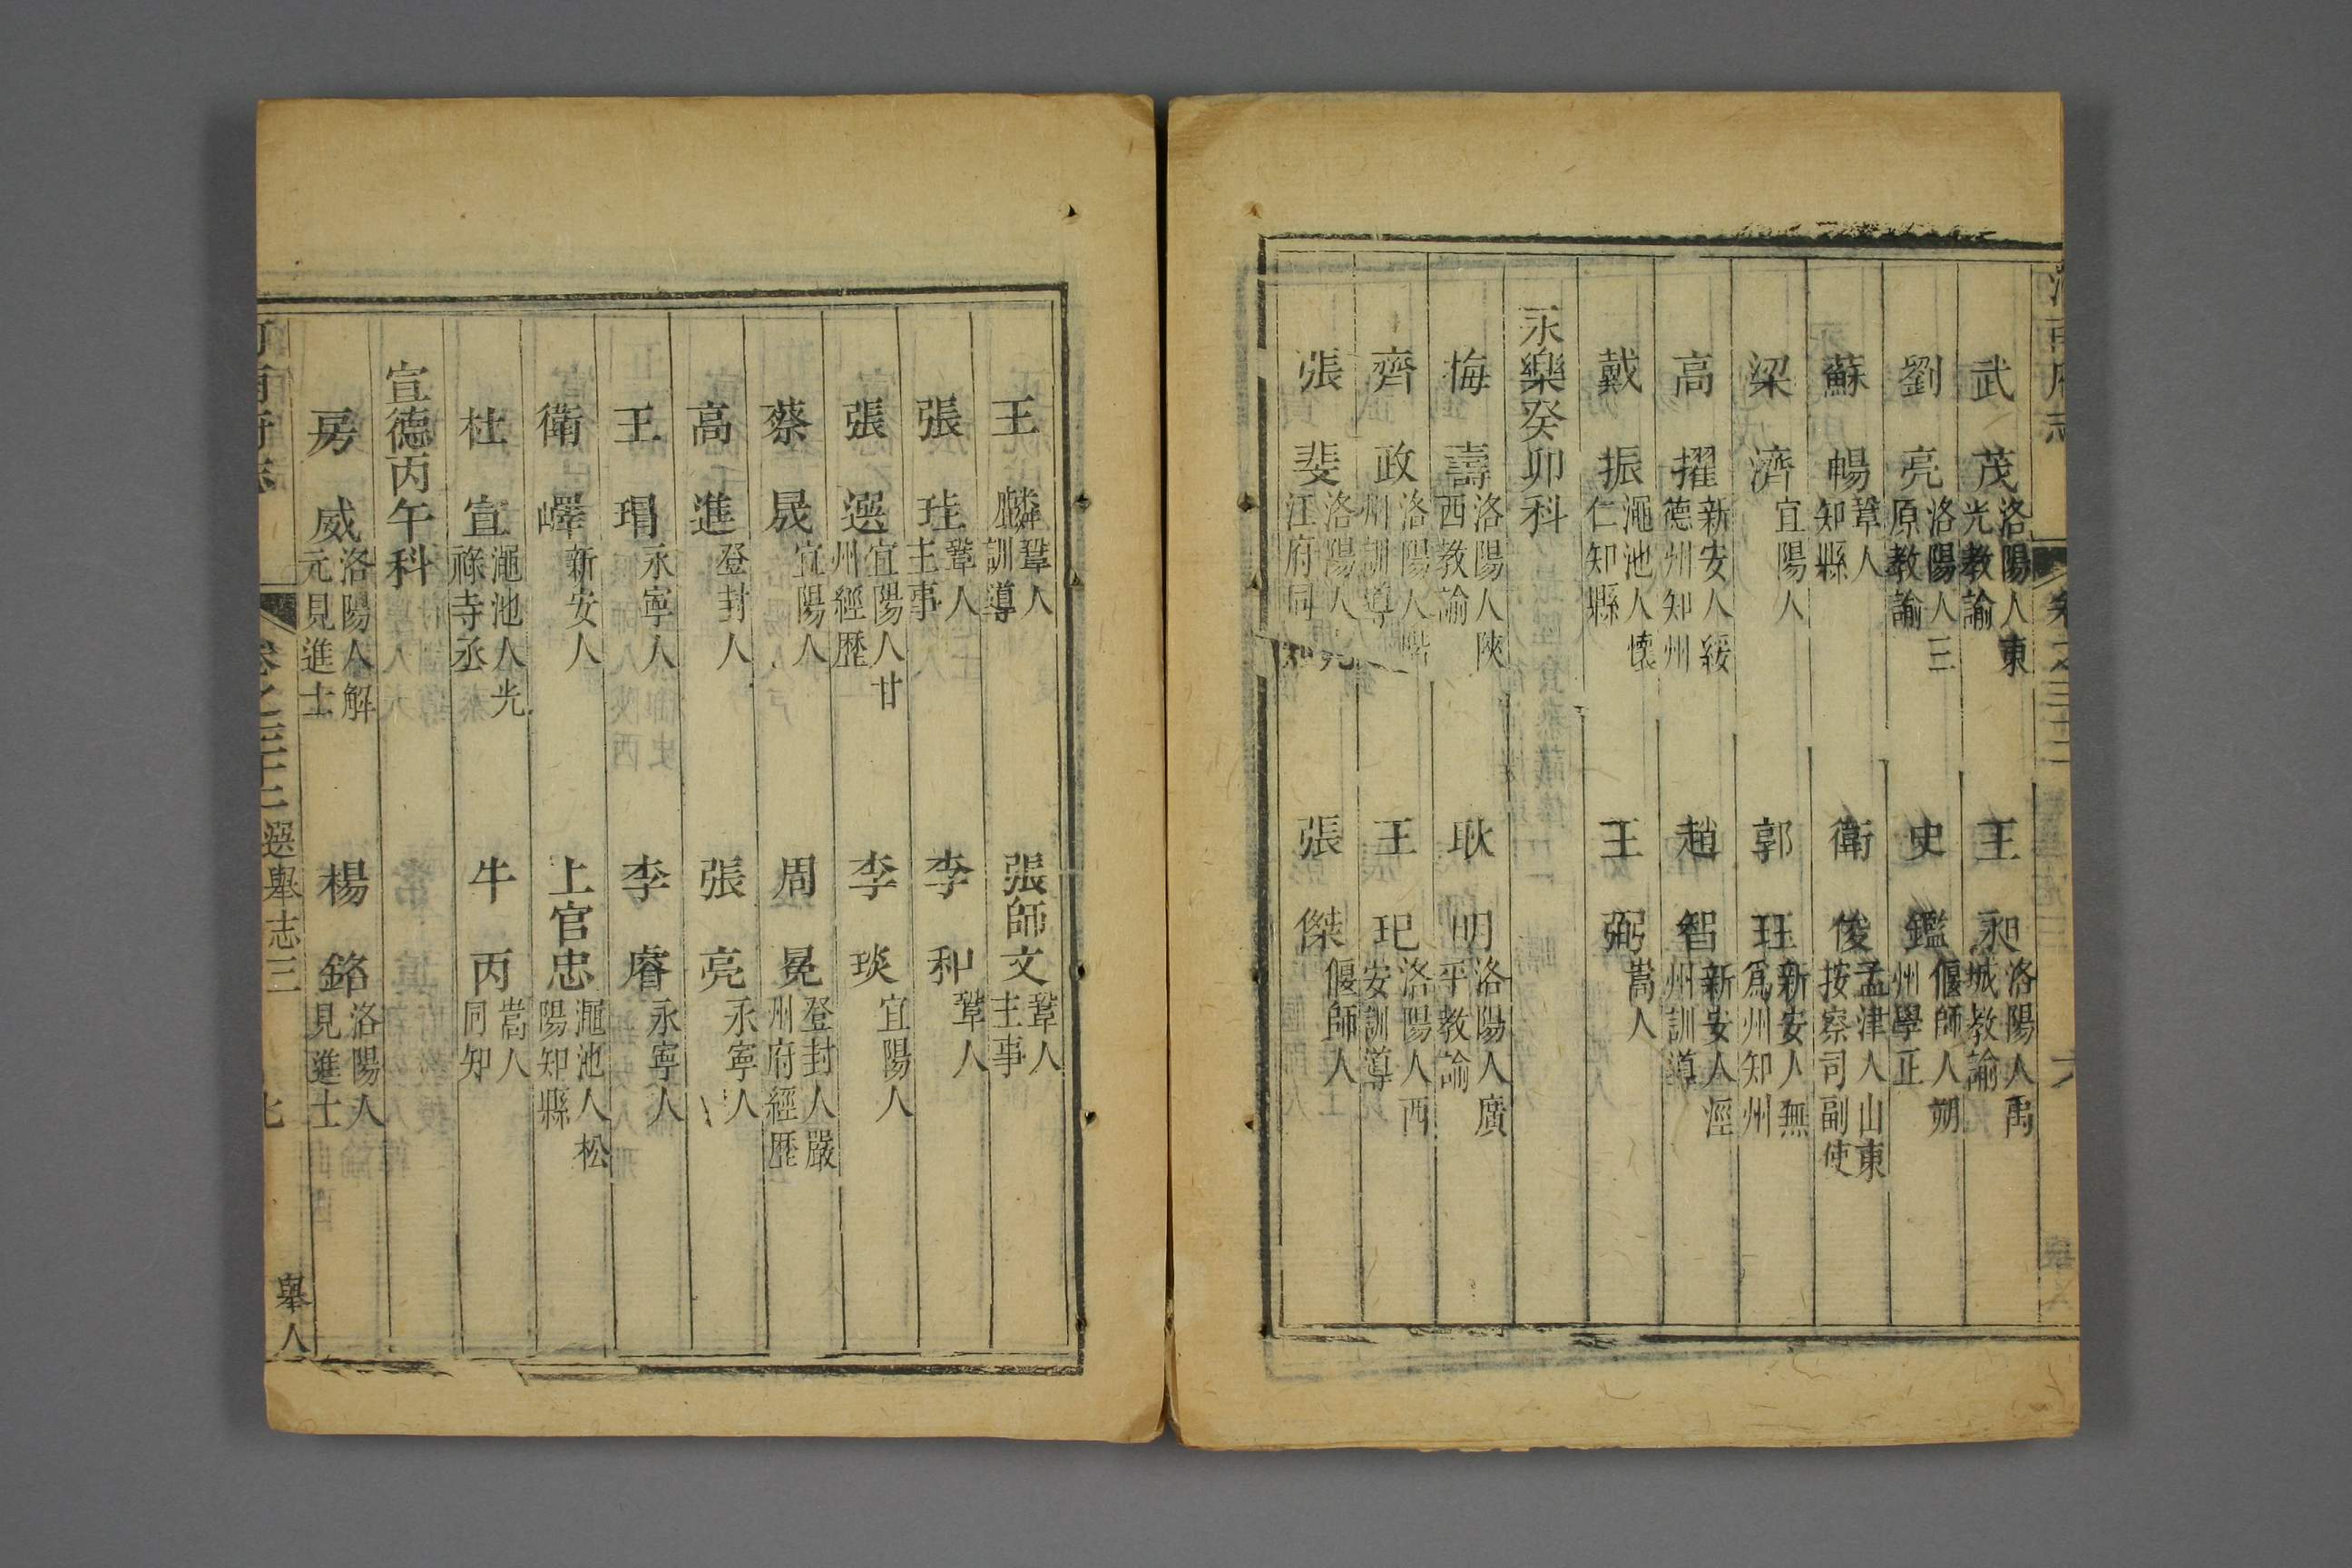 武茂洛陽人東光教諭
王昶洛陽人禹城教諭
劉亮洛陽人三原教諭
史鑑偃師人朔州學正
蘇暢鞏人知縣
衛俊孟津人山東按察司副使
梁濟宜陽人
郭珏新安人無爲州知州
高擢新安人綏德州知州
趙智新安人涇州訓導
戴振澠池人懷仁知縣
王弼嵩人
永樂癸卯科
梅壽洛陽人陝西教諭
耿明洛陽人廣平教諭
齊政洛陽人階州訓導
王玘洛陽人西安訓導
張斐洛陽人江府同
張傑偃師人
王麟鞏人訓導
張師文鞏人主事
張珪鞏人主事
李和鞏人
張選宜陽人甘州經歷
李琰宜陽人
蔡晟宜陽人
周冕登封人嚴州府經歷
高進登封人
張亮永寧人
王瑁永寧人
李睿永寧人
衛嶧新安人
上官忠澠池人松陽知縣
杜宣澠池人光祿寺丞
牛丙嵩人同知
宣德丙午科
房威洛陽人解元見進士
楊銘洛陽人見進士
河南府志
卷之三十二
選舉志三
七
舉人